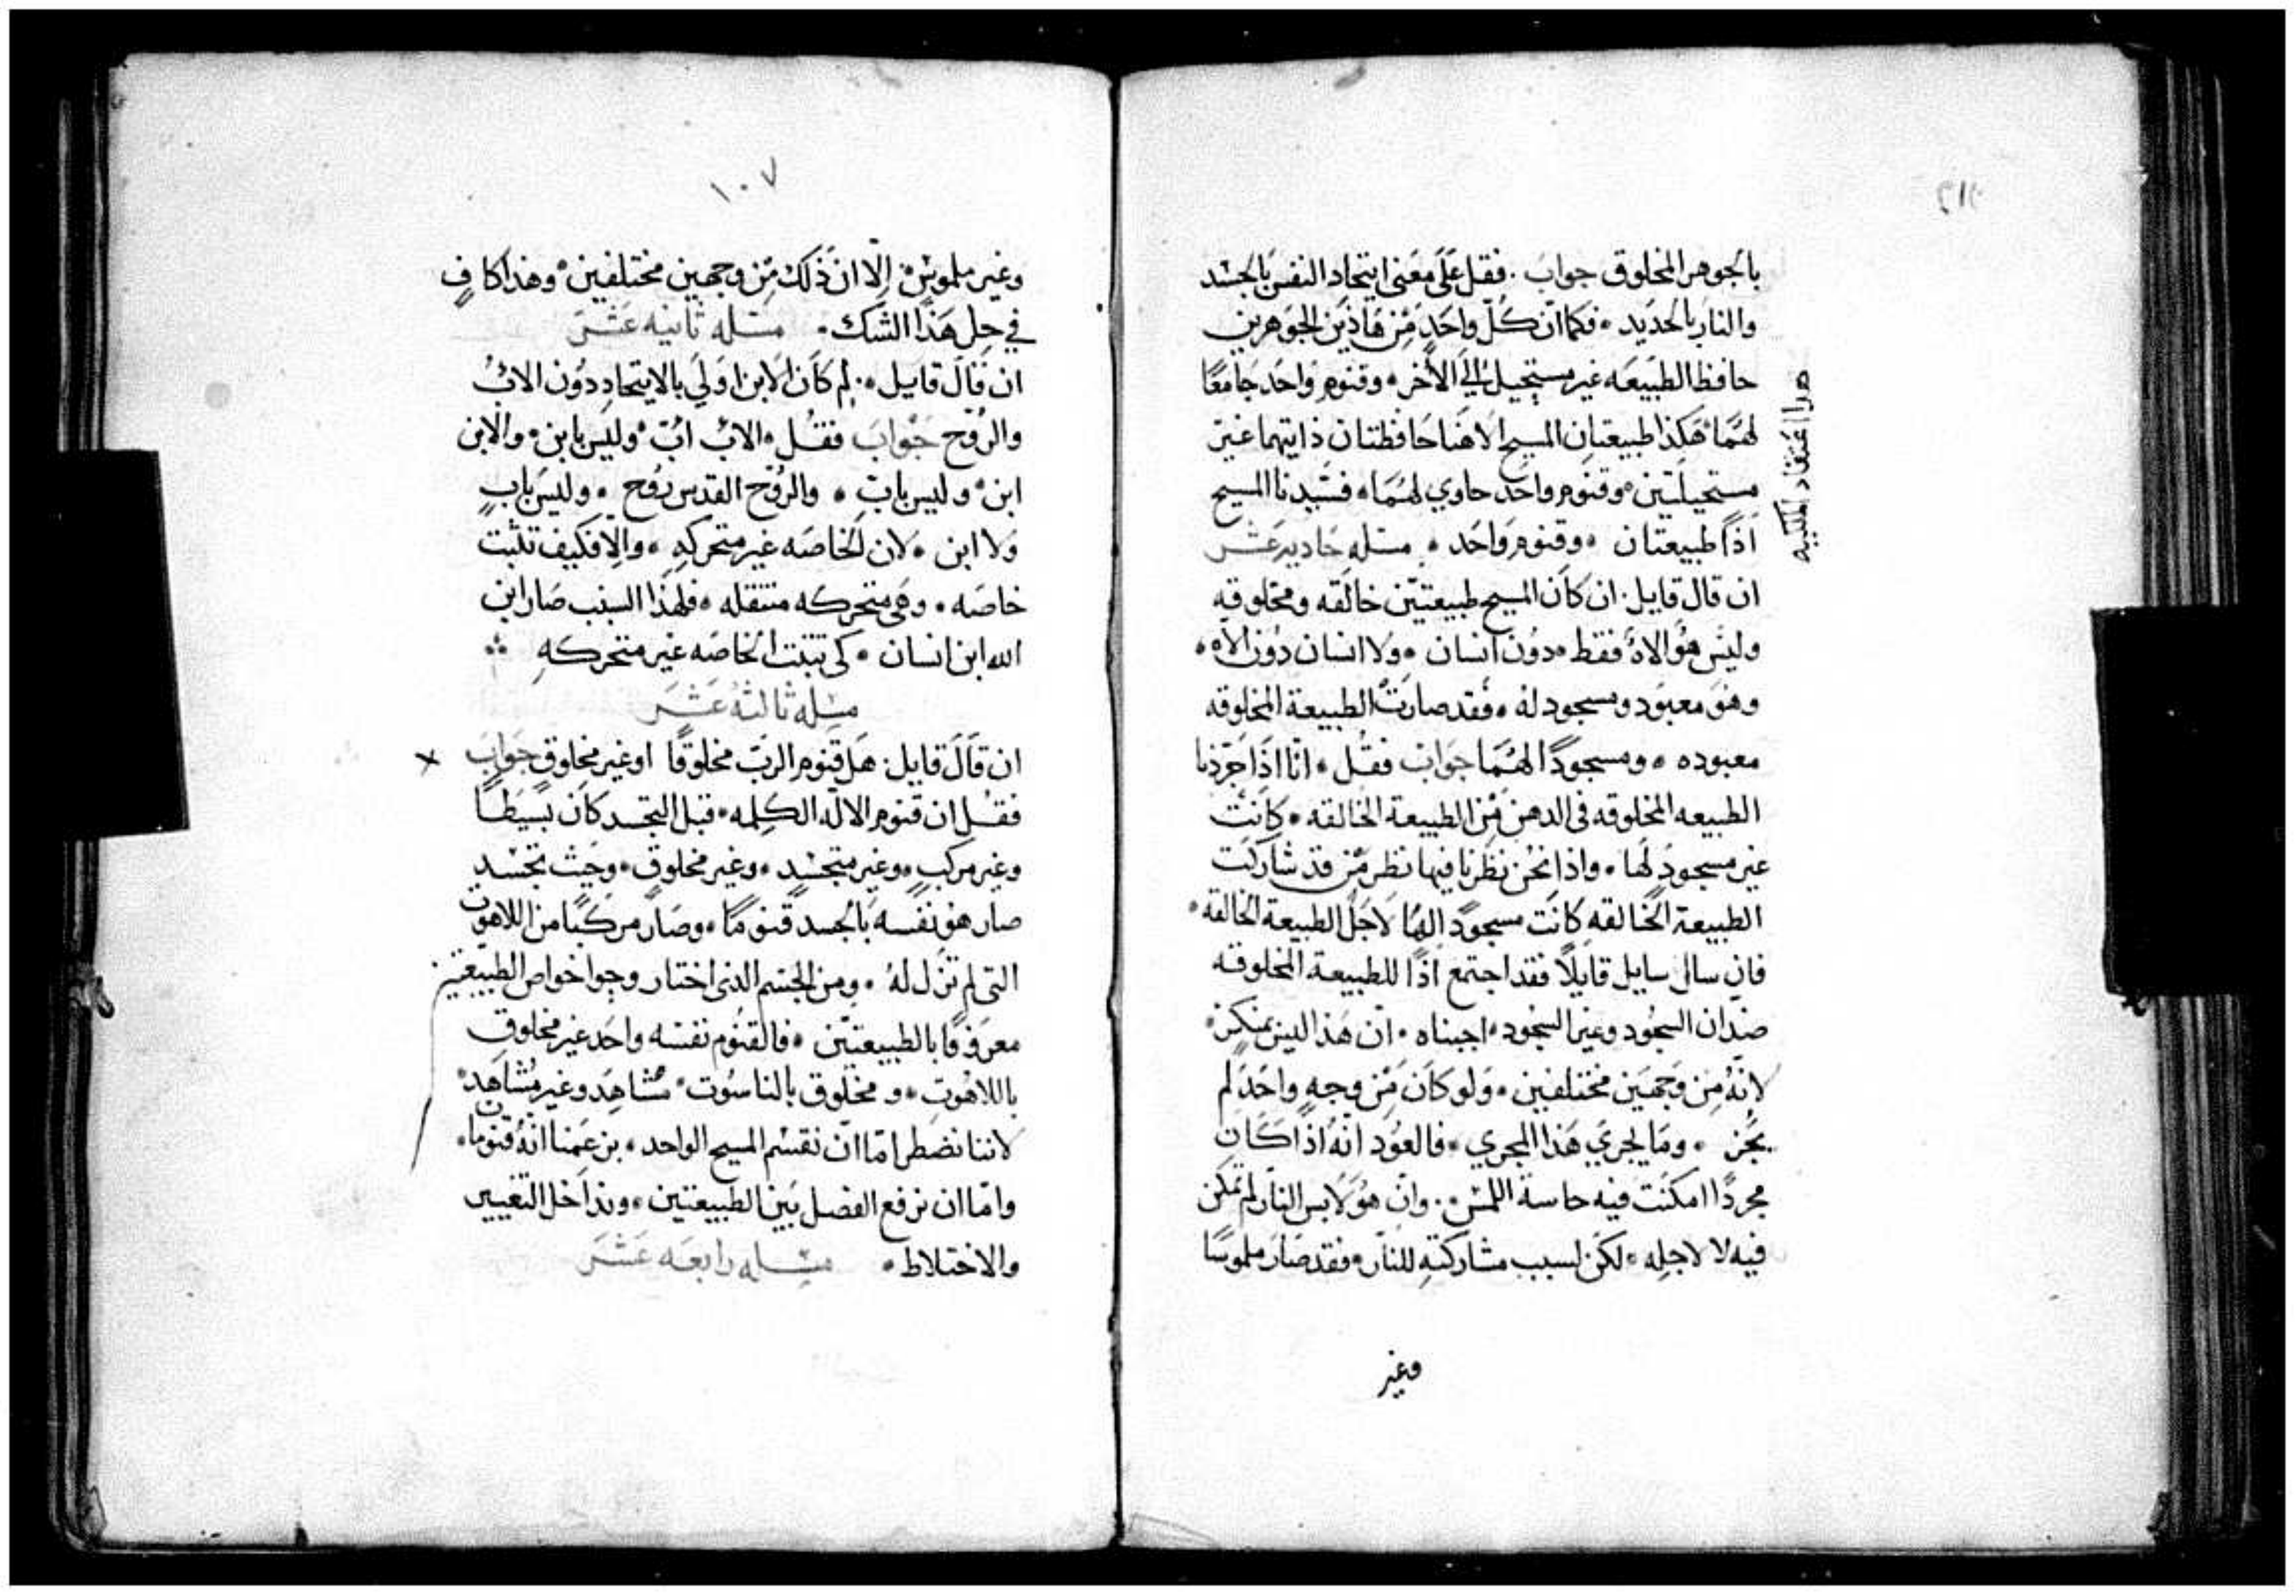 بالجوهر المخلوق جواب . فقل عَلَى معَنى ايتحاد النفس بالجسد
والنار بالحديد ٠ فكما انّ كُلّ واحَدٍ مِن هَاذين الجوهرين
حافظ الطبَيعَه غير مستحيل الَى الأخر ٠ وقنوم وَاحَد جَامعًا
لهمَا ٠ هَكذا طبيعتان المسيح الاهنا حَافظتان ذايتهما غير
مستحيلتين ٠ وقنوم واحَد حاوي لهُمَا ٠ فسَيدنا المسيح
اذًا طبيعتان ٠ وقنوم وَاحَد ٠ مسَله حَاديه عَشر
هدا اعتقاد الملكيه
ان قال قايل . ان كان المسيح طبيعتيّن خالقه ومخلوقه
وليسَ هُو الاهٌ فقط ٠ دوُن انسان ٠ ولا انسان دوُن الاه ٠
وهوَ معبوَد ومسجود له ٠ فقد صارتْ الطبيعة المخلوقه
معبوده ٠ ومسجودًا لهُمَا جَوابْ فقُل ٠ انّا اذا جَرّدنا
الطبيعه المخلوقه فى الدهن مِن الطبيعة الخالقه ٠ كانتْ
غير مسجودٍ لَها ٠ واذا نحْن نظَرنا فيها نظر مَن قد شارَكَت
الطبيعة الخالقه كانَت مسجودًا لهُا لاجَل الطبيعة الخالقه ٠
فان سال سايل قايلًا فقد اجتمع اذًا للطبيعة المخلوقه
ضدان السجُود وغير السجُود ٠ اجبناه ٠ انّ هَذا ليسَ بمنكرٍ ٠
لانّهُ مِن وَجهيَن مختلفين ٠ وَلو كانَ مِن وجهٍ واحَد لم
يجُز ٠ ومَا يجري هَذا المجري ٠ فالعوُد انّهُ اذا كَان
مجردًا امكنَت فيه حاسة اللمسْ . وانّ هُو لَابس النار لم تمكن
فيه لا لاجله ٠ لكَن لسبب مشاركتهِ للنار ٠ فقد صَار ملموسًا
وغير
١٠٧
وغير ملموسٍ ٠ إلّا انّ ذَلكْ مِن وجهين مختلفين ٠ وهَذا كافٍ
في حل هَذا الشك ٠ مسَله ثانيه عَشَرَ
ان قالَ قايَل . لِم كانَ الابن اولَي بالايتحادِ دوُن الابْ
والرُوح جَوابَ فقُل ٠ الابْ ابّ ٠ وليَس بابن ٠ والابن
ابن ٠ وليس بابٍ ٠ والرُوح القدس رُوح ٠ وليسَ بابٍ
وَلا ابن ٠ لان الخاصَه غير متحركهٍ ٠ والّا فكيف تثبت
خاصَه ٠ وهَي متحركه منتقله ٠ فلهَذا السبب صَار ابن
الله ابن انسان ٠ كى تثبت الخاصَه غير متحركهِ
مسَله ثالثهُ عَشَرَ
ان قَالَ قايل . هَل قنوم الربّ مخلوقًا او غير مخلوق جَوابَ
فقُل ان قنوم الالَه الكلمه ٠ قبل التجسد كان بسَيطًا
وغير مركبٍ ٠ وغير متجسدٍ ٠ وغير مخلوقٍ ٠ وحَيث تجسَد
صار هُو نفسه بالجسد قنومًا ٠ وصَار مركبًا من اللاهوت
التى لم تزل لهُ ٠ ومن الجسم الذى اختار وحوا خواص الطبيعتين
معروفًا بالطبيعتيّن ٠ فالقنوُم نفسَه واحَد غير مخلوقٍ
باللاهوُتِ ٠ ومخلوق بالناسُوت ٠ مُشاهَد وغير مُشاهَد ٠
لاننا نضطر امّا ان نقسم المسيح الواحد ٠ بزعمنا انّهُ قنومان ٠
وامّا ان نرفع الفصل بَين الطبيعتين ٠ وندَاخل التغيير
والاختلاط ٠ مسَله رابعَه عَشَرَ